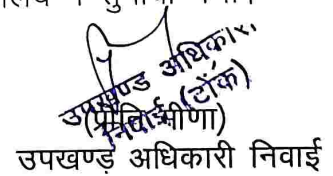 उपखण्ड अधिकारी
निवाई (टोंक)
मीणा)
उपखण्ड अधिकारी निवाई